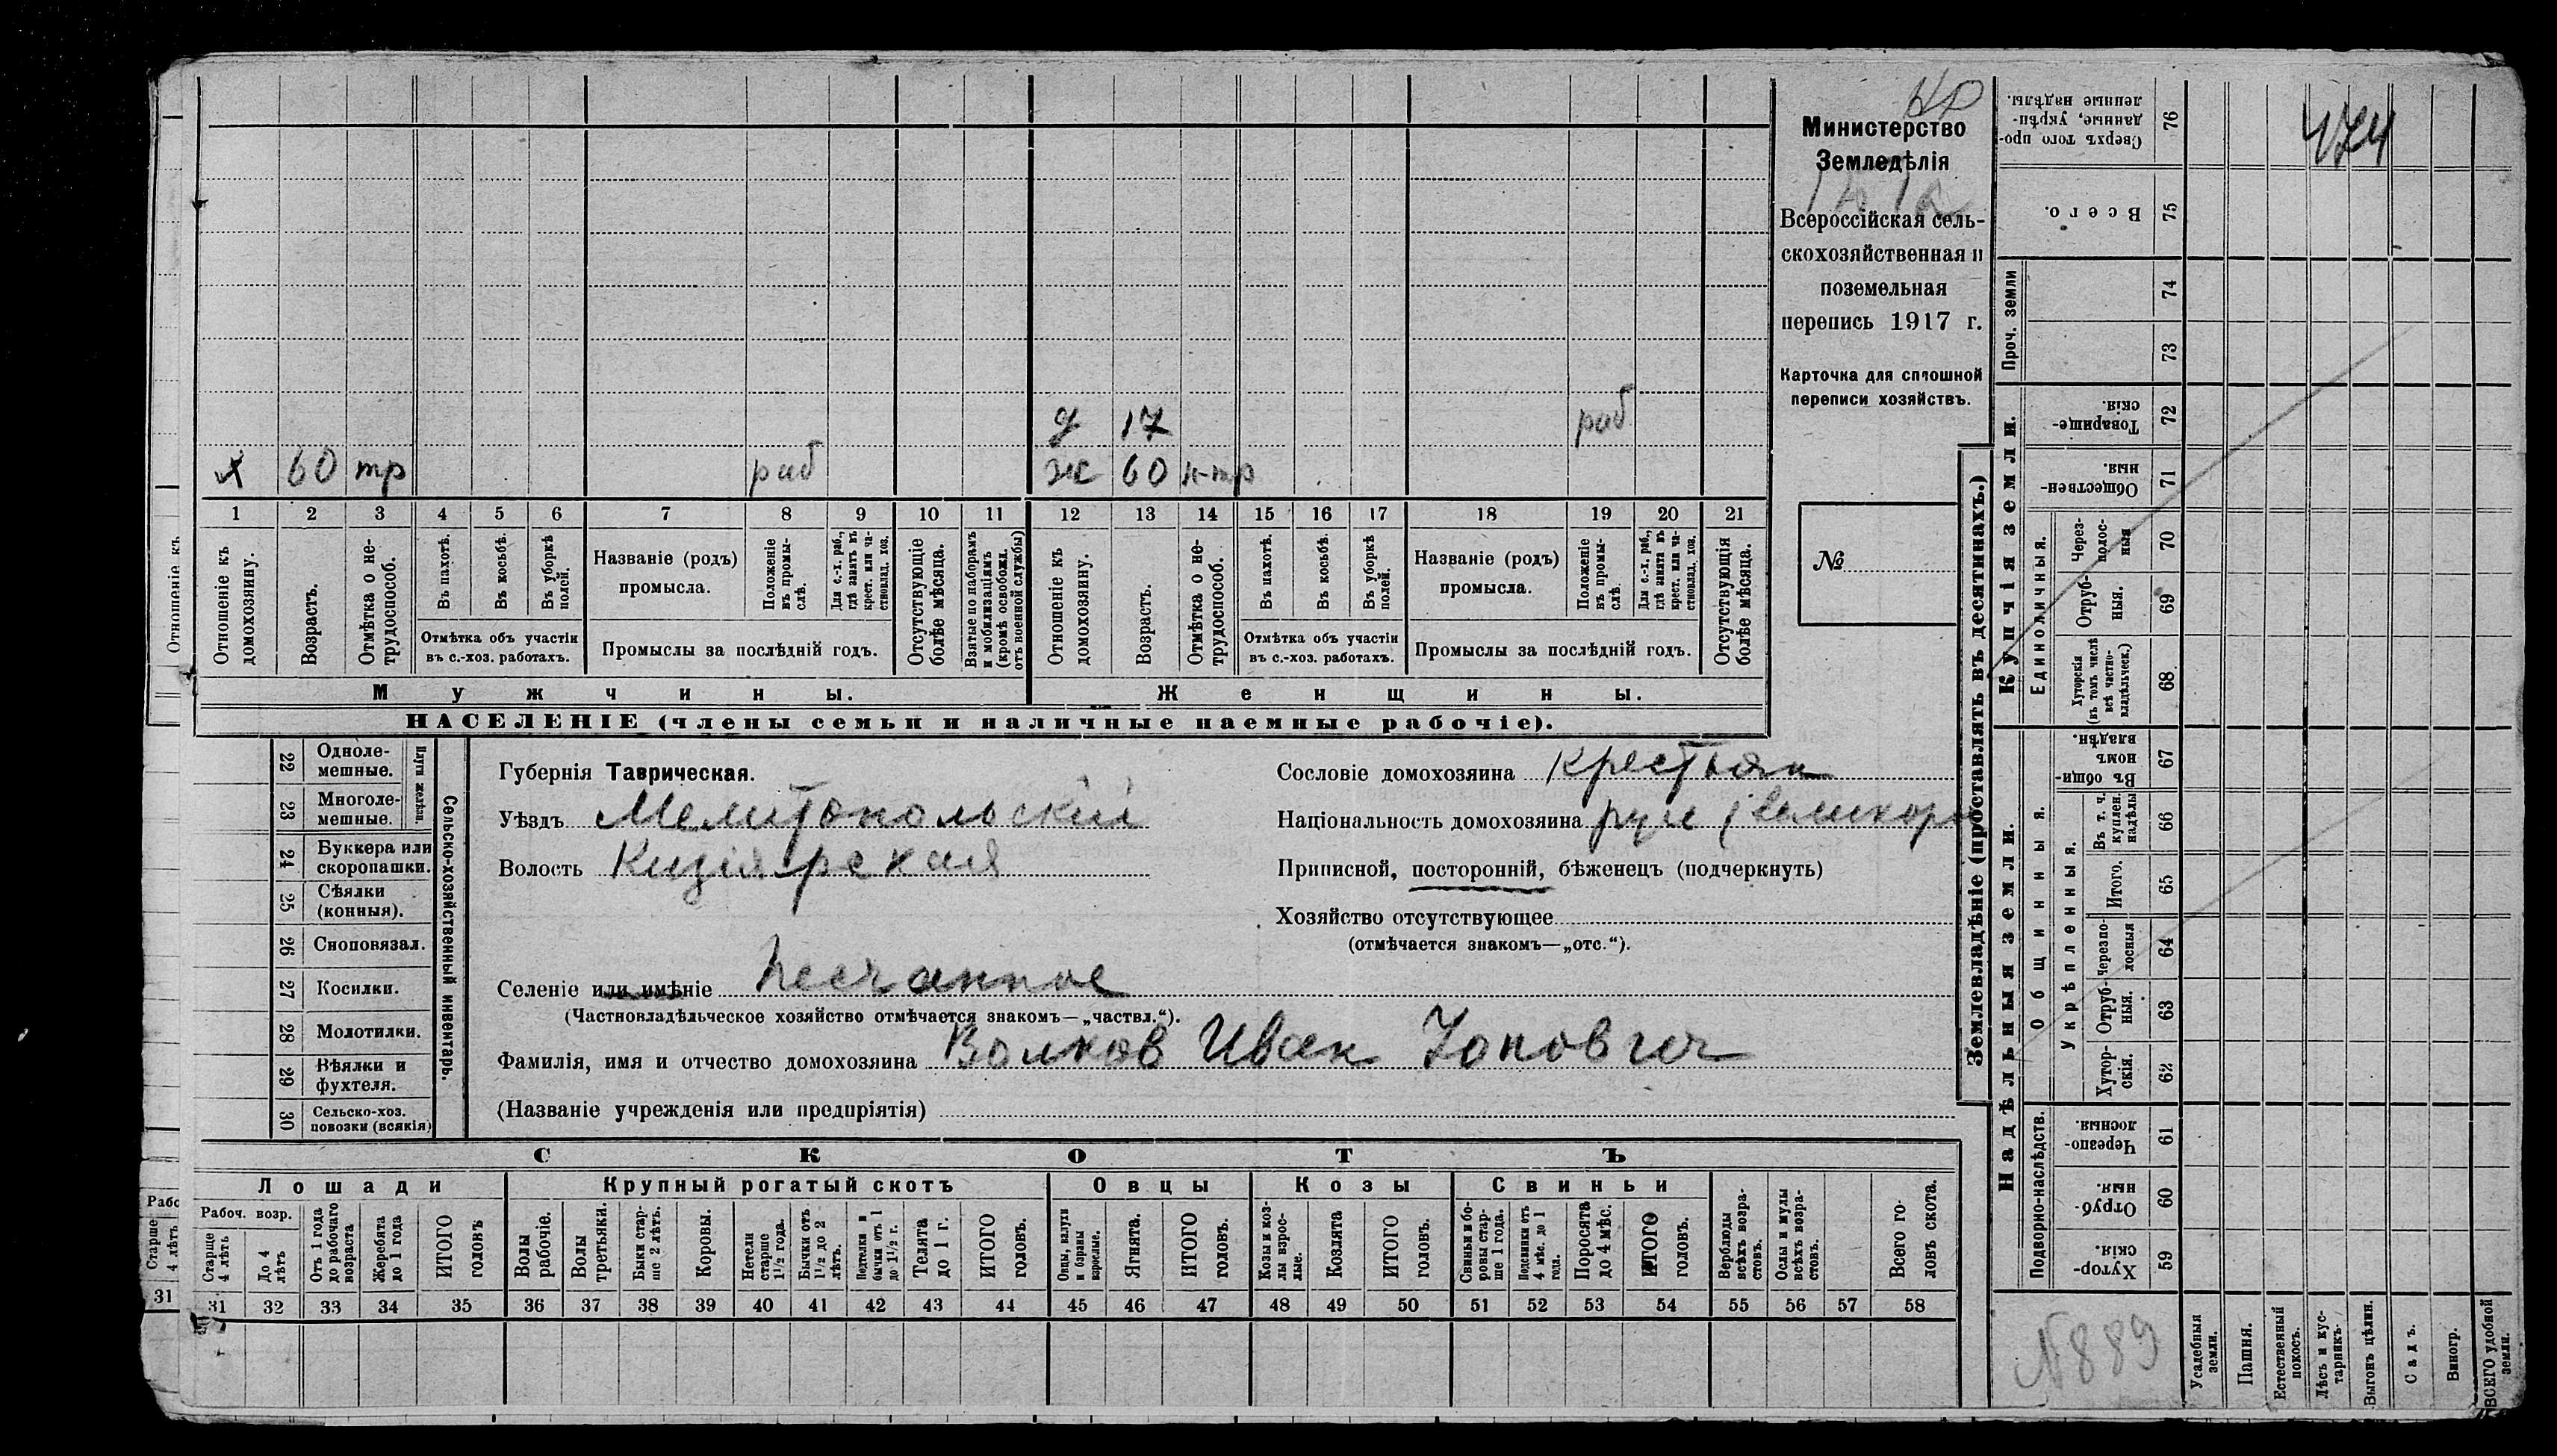 Министерство
Земледѣлія
Всероссійская сель-
скохозяйственная и
поземельная
перепись 1917 г.
Карточка для сплошной
переписи хозяйствъ.
№
д 17 раб
х 60 тр раб ж 60 н-тр
1 2 3 4 5 6 7 8 9 10 11 12 13 14 15 16 17 18 19 20 21
Отношеніе къ домохозяину.
Возрастъ.
Отмѣтка о не-трудоспособ.
Въ пахотѣ.
Въ косьбѣ.
Въ уборкѣ полей.
Отмѣтка объ участіи
въ с.-хоз. работахъ.
Названіе (родъ)
промысла.
Положеніе въ промы-слѣ.
Для с.-х. раб., гдѣ занятъ въ крест. или ча-стновлад. хоз.
Промыслы за послѣдній годъ.
Отсутствующіе болѣе мѣсяца.
Взятые по наборамъ и мобилизаціямъ (кромѣ освобожд. отъ военной службы)
Отношеніе къ домохозяину.
Возрастъ.
Отмѣтка о не-трудоспособ.
Въ пахотѣ.
Въ косьбѣ.
Въ уборкѣ полей.
Отмѣтка объ участіи
въ с.-хоз. работахъ.
Названіе (родъ)
промысла.
Положеніе въ промы-слѣ.
Для с.-х. раб., гдѣ занята въ крест. или ча-стновлад. хоз.
Промыслы за послѣдній годъ.
Отсутствующія болѣе мѣсяца.
Мужчины. Женщины.
НАСЕЛЕНІЕ (члены семьи и наличные наемные рабочіе).
22 Одноле-мешные.
23 Многоле-мешные.
Плуги желѣз.
24 Буккера или скоропашки.
25 Сѣялки (конныя).
26 Сноповязал.
27 Косилки.
28 Молотилки.
29 Вѣялки и фухтеля.
30 Сельско-хоз. повозки (всякія)
Сельско-хозяйственный инвентарь.
Губернія Таврическая.
Уѣздъ Мелитопольскій
Волость Кизіярская
Селеніе или имѣніе Песчанное
(Частновладѣльческое хозяйство отмѣчается знакомъ—„частвл.“).
Фамилія, имя и отчество домохозяина Волков Иван
(Названіе учрежденія или предпріятія)
Сословіе домохозяина крестьян
Національность домохозяина русс (великоро
Приписной, посторонній, бѣженецъ (подчеркнуть)
Хозяйство отсутствующее
(отмѣчается знакомъ—„отс.“).
СКОТЪ
Лошади Крупный рогатый скотъ Овцы Козы Свиньи
Рабоч. возр.
Старше 4 лѣтъ
До 4 лѣтъ
Отъ 1 года до рабочаго возраста
Жеребята до 1 года
ИТОГО головъ
Волы рабочіе.
Волы третьяки.
Быки стар-ше 2 лѣтъ.
Коровы.
Нетели старше 1½ года.
Бычки отъ 1½ до 2 лѣтъ.
Подтелки и бычки отъ 1 до 1½ г.
Телята до 1 г.
ИТОГО головъ.
Овцы, валухи и бараны взрослые.
Ягнята.
ИТОГО головъ.
Козы и коз-лы взрос-лые.
Козлята
ИТОГО головъ.
Свиньи и бо-ровы стар-ше 1 года.
Подсвинки отъ 4 мѣс. до 1 года.
Поросята до 4 мѣс.
ИТОГО головъ.
Верблюды всѣхъ возра-стовъ.
Ослы и мулы всѣхъ возра-стовъ.
Всего го-ловъ скота.
31 32 33 34 35 36 37 38 39 40 41 42 43 44 45 46 47 48 49 50 51 52 53 54 55 56 57 58
Землевладѣніе (проставлять въ десятинахъ.)
Купчія земли.
Надѣльныя земли.
Сверхъ того про-данные, укрѣп-ленные надѣлы. 76
Всего. 75
Проч. земли
74
73
Товарище-скія. 72
Обществен-ныя. 71
Единоличныя.
Через-полос-ныя 70
Отруб-ныя. 69
Хуторскія (въ томъ числѣ всѣ частно-владѣльческ.) 68
Общинныя.
Въ общи-номъ владѣн. 67
Укрѣпленныя.
Въ т. ч. куплен. надѣлы 66
Итого. 65
Черезпо-лосныя 64
Отруб-ныя. 63
Хутор-скія. 62
Подворно-наслѣдств.
Черезпо-лосныя. 61
Отруб-ныя. 60
Хутор-скія. 59
Усадебныя земли.
Пашня.
Естественный покосъ.
Лѣсъ и кус-тарникъ.
Выгонъ цѣлин.
Садъ.
Виногр.
ВСЕГО удобной земли.
474
N 889
Отношеніе къ
Рабо
Старше 4 лѣтъ
31